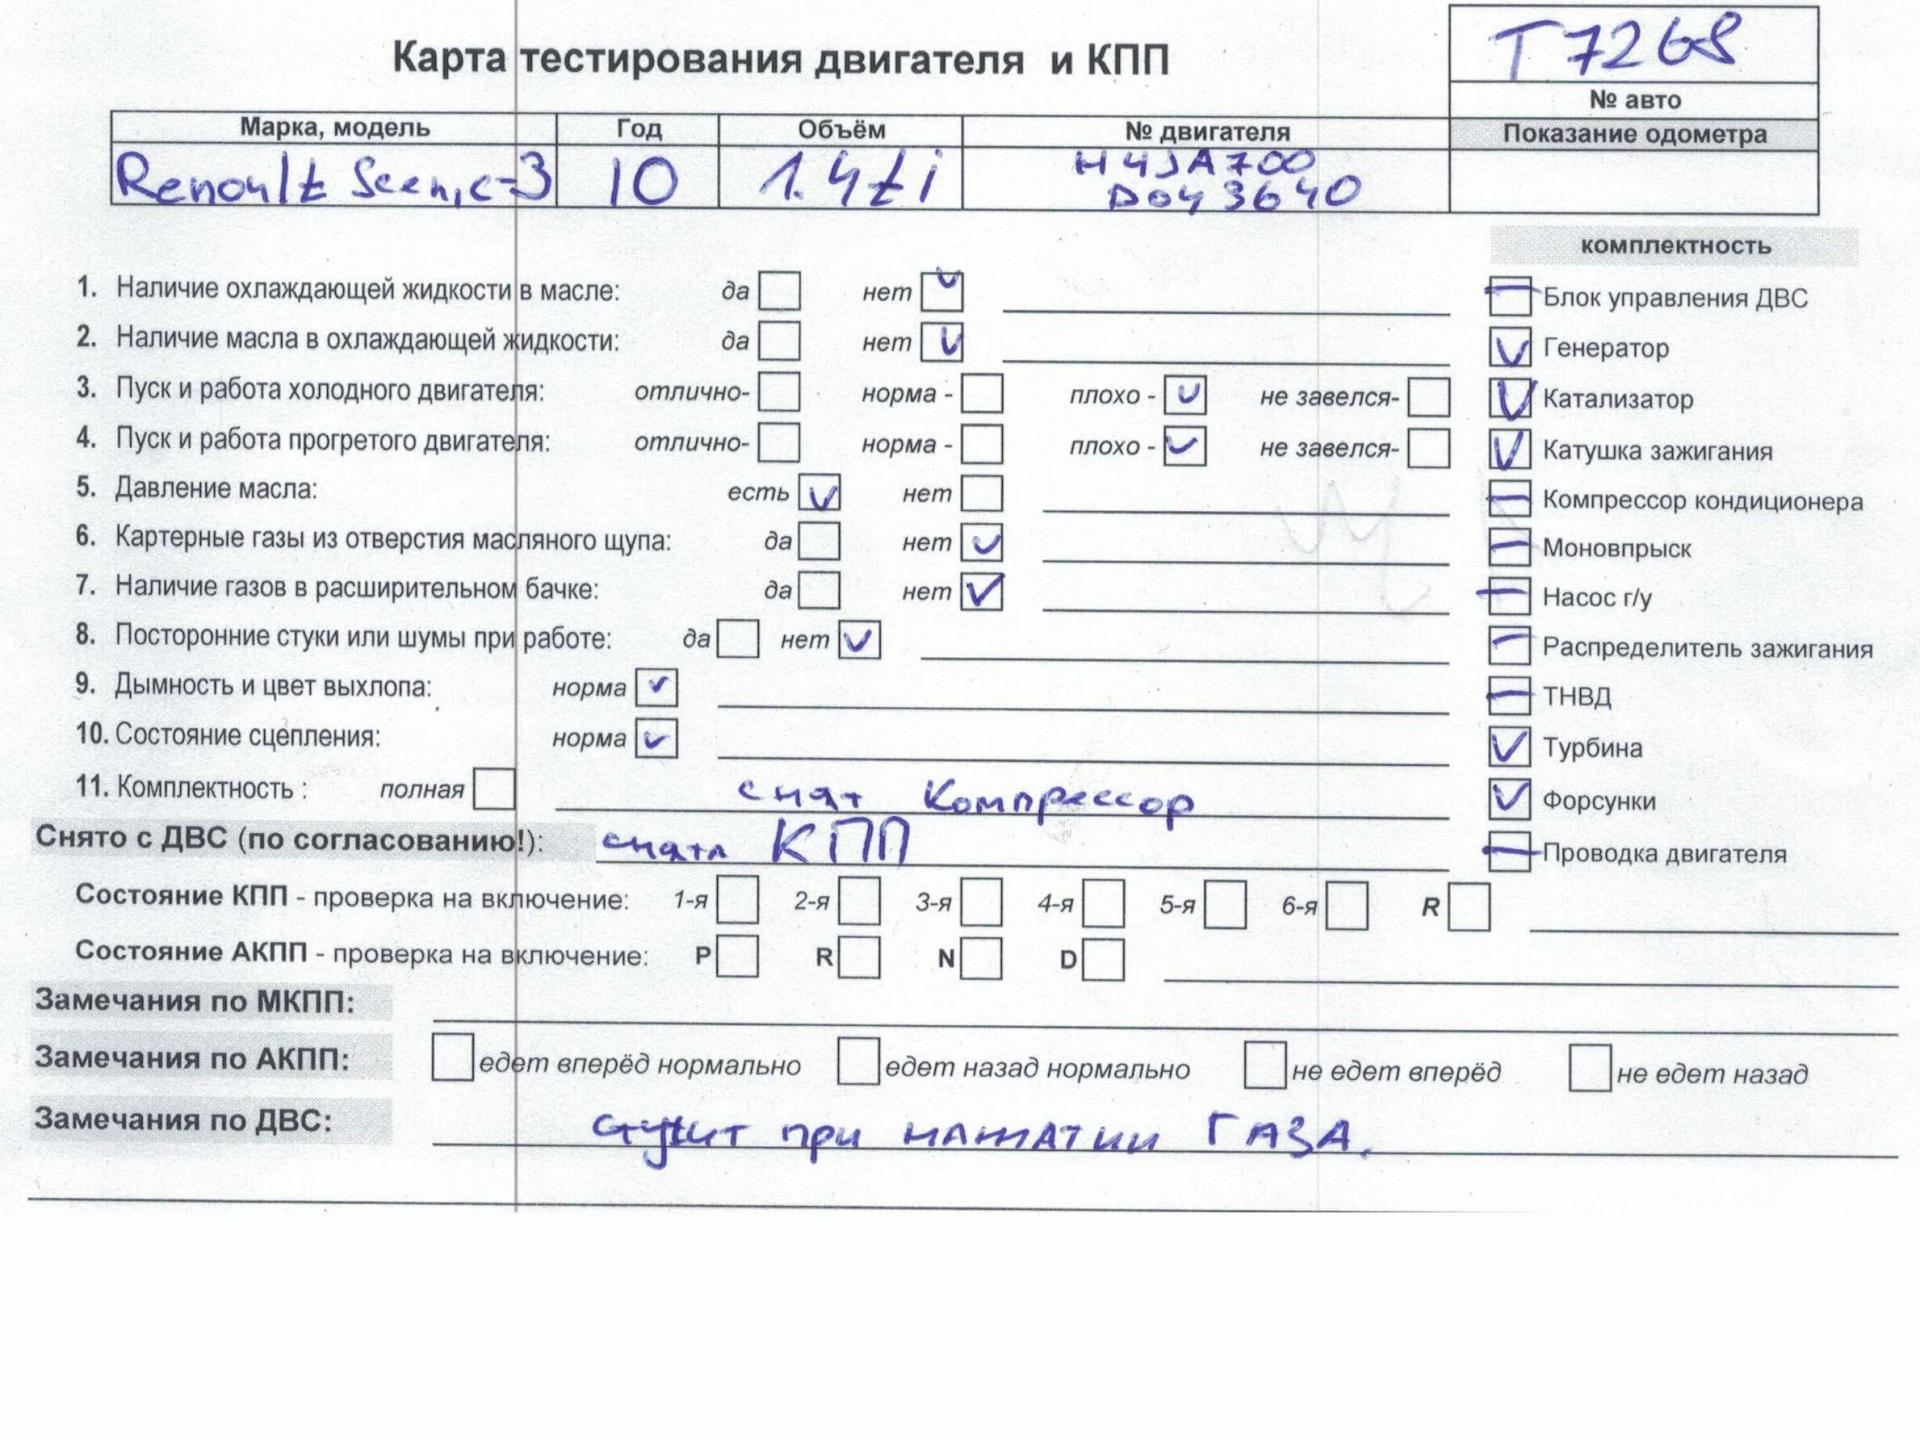 Карта тестирования двигателя и КПП
T7268
№ авто
Марка, модель Год Объём № двигателя Показание одометра
Renoult Scenic-3 10 1.4ti H4JA700
D043640
комплектность
1. Наличие охлаждающей жидкости в масле: да нет
Блок управления ДВС
2. Наличие масла в охлаждающей жидкости: да нет
Генератор
3. Пуск и работа холодного двигателя: отлично- норма - плохо - не завелся-
Катализатор
4. Пуск и работа прогретого двигателя: отлично- норма - плохо - не завелся-
Катушка зажигания
5. Давление масла: есть нет
Компрессор кондиционера
6. Картерные газы из отверстия масляного щупа: да нет
Моновпрыск
7. Наличие газов в расширительном бачке: да нет
Насос г/у
8. Посторонние стуки или шумы при работе: да нет
Распределитель зажигания
9. Дымность и цвет выхлопа: норма
ТНВД
10. Состояние сцепления: норма
Турбина
11. Комплектность : полная снят Компрессор
Форсунки
Снято с ДВС (по согласованию!): снята КПП
Проводка двигателя
Состояние КПП - проверка на включение: 1-я 2-я 3-я 4-я 5-я 6-я R
Состояние АКПП - проверка на включение: P R N D
Замечания по МКПП:
Замечания по АКПП: едет вперёд нормально едет назад нормально не едет вперёд не едет назад
Замечания по ДВС: при нажатии ГАЗА.